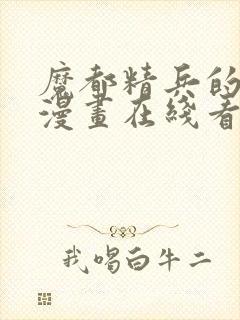 魔都精兵的
漫畫在綫看
我唱白牛二